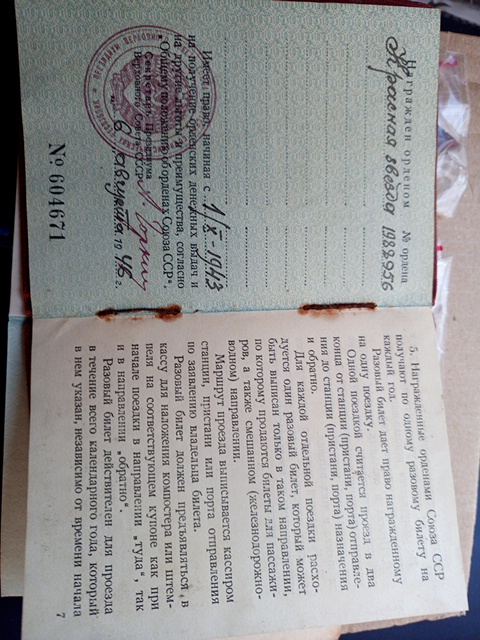 Награжден орденом № ордена
Красная звезда 1982956
Имеет право, начиная с 1/X-1943
на получение орденских денежных выдач и
на другие льготы и преимущества, согласно
„Общему положению об орденах Союза ССР“.
Секретарь Президиума
Верховного Совета СССР
„6“ августа 1946 г.
№ 604671
5. Награжденные орденами Союза ССР
получают по одному разовому билету на
каждый год.
Разовый билет дает право награжденному
на одну поездку.
Одной поездкой считается проезд в два
конца от станции (пристани, порта) отправле-
ния до станции (пристани, порта) назначения
и обратно.
Для каждой отдельной поездки расхо-
дуется один разовый билет, который может
быть выписан только в таком направлении,
по которому продаются билеты для пассажи-
ров, а также смешанном (железнодорожно-
водном) направлении.
Маршрут проезда выписывается кассиром
станции, пристани или порта отправления
по заявлению владельца билета.
Разовый билет должен предъявляться в
кассу для наложения компостера или штем-
пеля на соответствующем купоне как при
начале поездки в направлении „туда“, так
и в направлении „обратно“.
Разовый билет действителен для проезда
в течение всего календарного года, который
в нем указан, независимо от времени начала
7